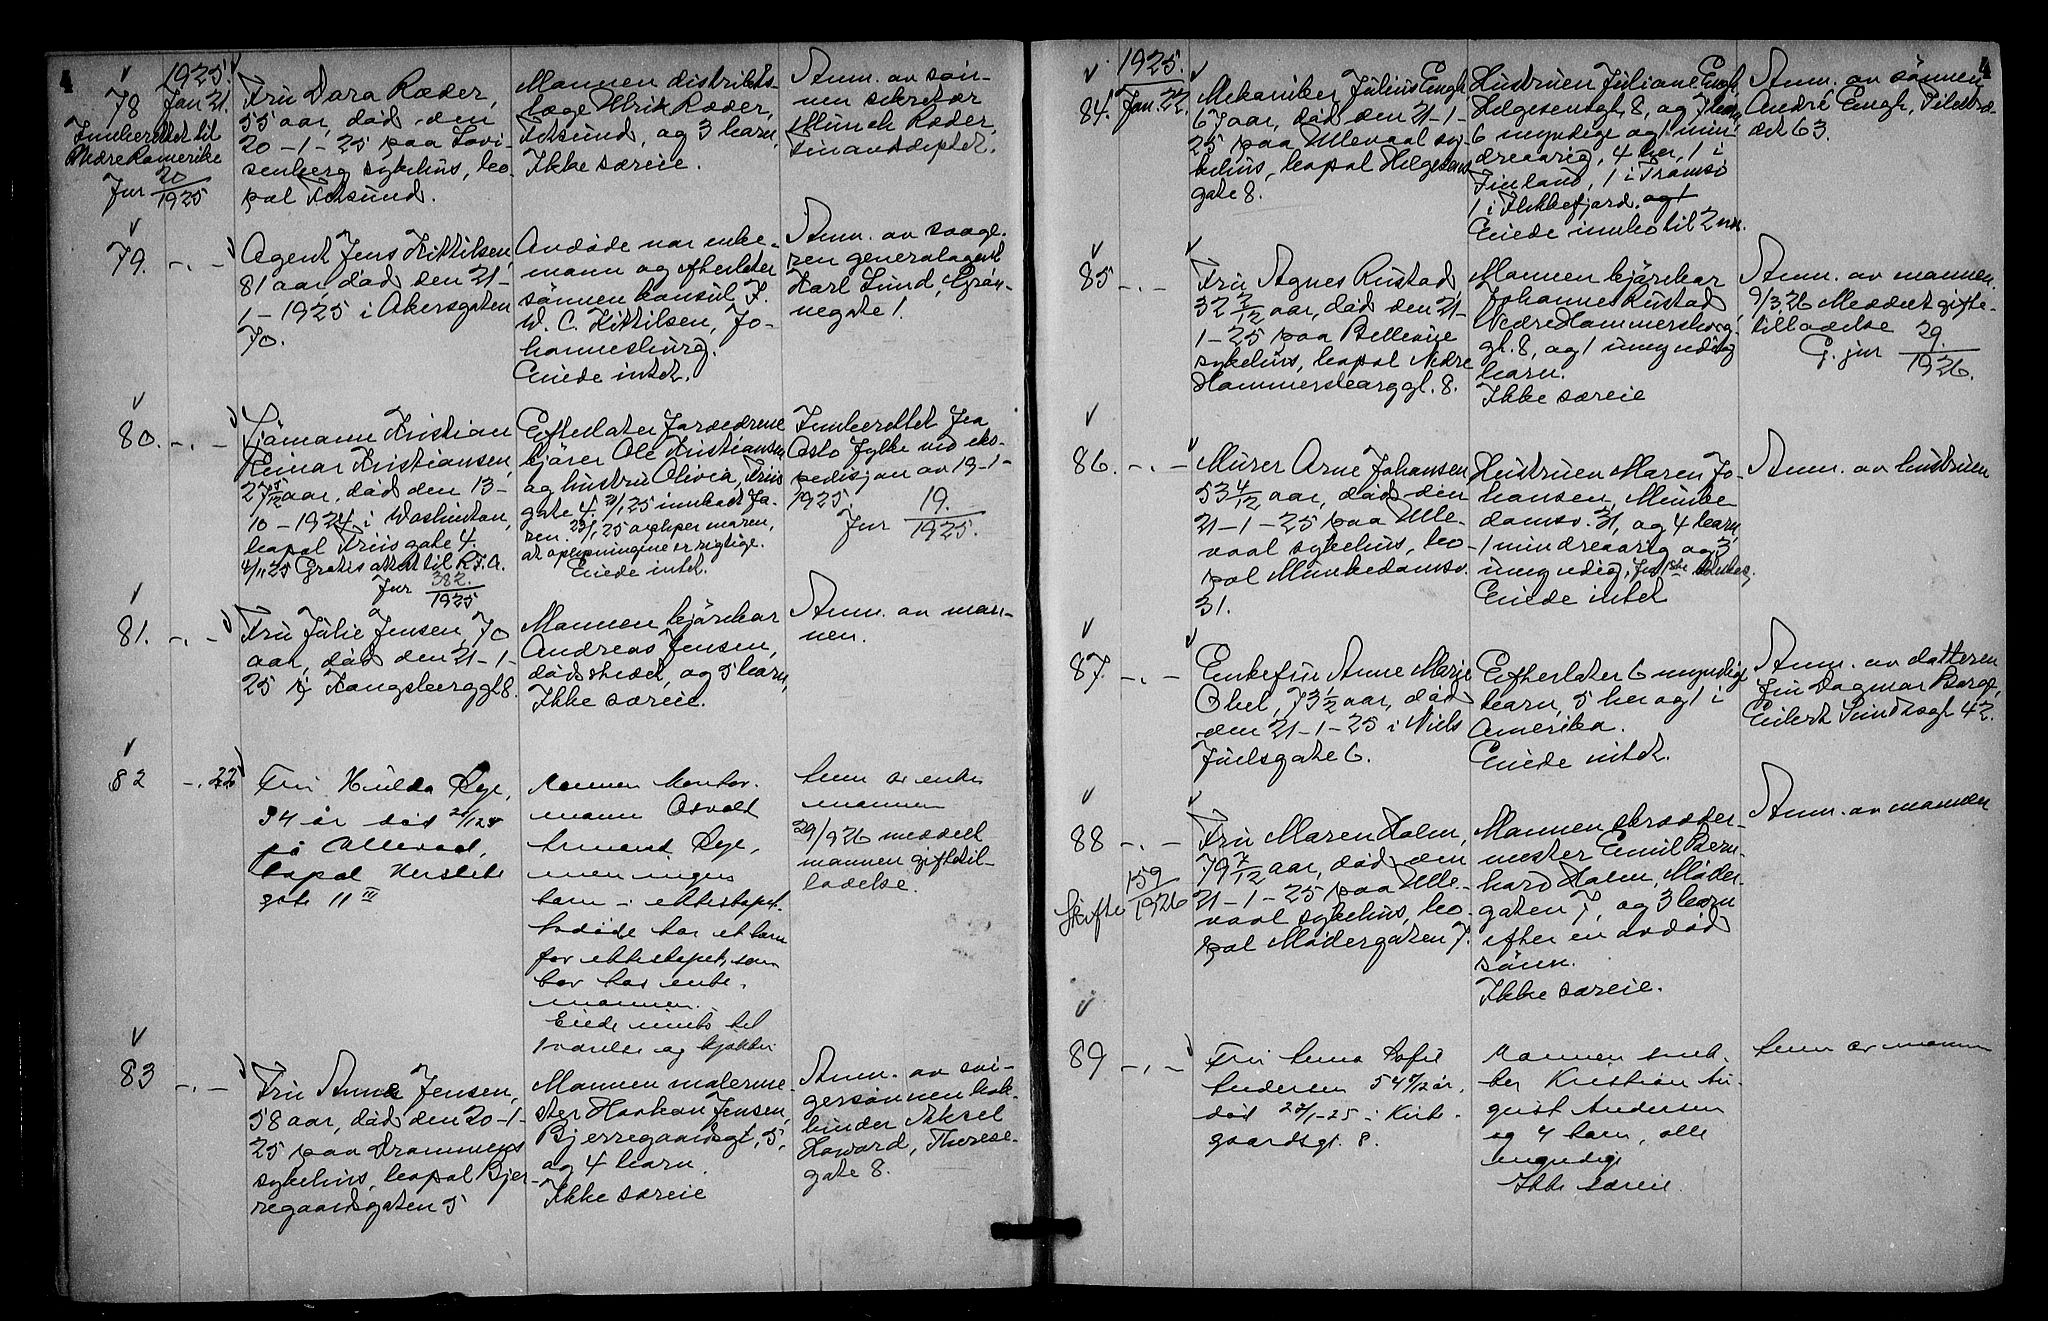 4
1925.
78 Jan 21.
Innberettet til
Nedre Romerike
Jnr 20/1925
Fru Dora Ræder,
55 aar, død den
20-1-25 paa Lovi-
senberg sykehus, bo-
pæl Fetsund.
Mannen distrikts-
læge Ulrik Ræder,
Fetsund, og 3 barn,
Ikke særeie.
Anm. av søn-
nen sekretær
Munch Ræder,
Finansdeptet.
79. -.-
Agent Jens Kittilsen,
81 aar, død den 21-
1-1925 i Akersgaten
70.
Avdøde var enke-
mann og efterlater
sønnen konsul F.
W. C. Kittilsen, Jo-
hannesburg.
Eiede intet.
Anm. av svoge-
ren generalagent
Karl Lund, Grøn-
negate 1.
80. -.-
Sjømann Kristian
Reinar Kristiansen,
27 5/12 aar, død den 13-
10-1924 i Washinton,
bopæl Friisgate 4.
4/11 25 Gratis attest til R.F.A.
Jnr 382./1925
Efterlater forældrene
kjører Ole Kristiansen
og hustru Olivia, Friis
gate 4. 21/1 25 innkaldt fa-
ren. 23/1 25 avhper moren,
at oplysningene er rigtige.
Eiede intet.
Innberettet fra
Oslo fylke ved eks-
pedisjon av 19-1-
1925.
Jnr 19./1925.
81. -.-
Fru Julie Jensen, 70
aar, død den 21-1-
25 i Kongsberggt 8.
Mannen kjørekar
Andreas Jensen,
dødsstedet, og 5 barn,
Ikke særeie.
Anm. av man-
nen.
82 -. 22
Fru Hulda Øye,
34 år død
på Ullevaal,
bopæl Herslebs
gate 11 III
Mannen kontor-
mann Osvald
Armand Øye,
men ingen
barn i ekteskapet.
Avdøde har et barn
før ekteskapet, som
bor hos enke-
mannen.
Eiede innbo til
1 værelse og kjøkken
Anm av enke
mannen
29/9 26 meddelt
mannen giftetil-
ladelse.
83 -.-
Fru Anna Jensen,
58 aar, død den 20-1-
25 paa Drammens
sykehus, bopæl Bjer-
regaardsgaten 5
Mannen malerme-
ster Haakon Jensen,
Bjerregaardsgt. 5,
og 4 barn.
Ikke særeie
Anm. av svi-
gersønnen bok-
binder Aksel
Howard, Therese-
gate 8.
4
1925.
84. Jan 22.
Mekaniker Julius Engh
67 aar, død den 21-1-
25 paa Ullevaal sy-
kehus, bopæl Helgesens
gate 8.
Hustruen Juliane Engh,
Helgesensgt. 8, og 7 barn,
6 myndige og 1 min-
dreaarig, 4 her, 1 i
Finland, 1 i Tromsø
1 i Flekkefjord, og 1
Eiede innbo til 2 vær.
Anm. av sønnen
André Engh, Pilestræ-
det 63.
85 -.-
Fru Agnes Rustad
32 7/12 aar, død den 21-
1-25 paa Bellevue
sykehus, bopæl Nedre
Hammersborggt. 8.
Mannen kjørekar
Johannes Rustad
Nedre Hammersborg-
gt. 8, og 1 umyndig
barn.
Ikke særeie
Anm. av mannen.
9/3.26 Meddelt gifte-
tilladelse
G. jnr 29./1926.
86. -.-
Murer Arne Johansen
53 4/12 aar, død den
21-1-25 paa Ulle-
vaal sykehus, bo-
pæl Munkedamsv.
31.
Hustruen Maren Jo-
hansen, Munke-
damsv. 31, og 4 barn,
1 mindreaarig og 3
umyndig,
Eiede intet
Anm. av hustruen
87. -.-
Enkefru Anne Marie
Obel, 73 1/2 aar, død
den 21-1-25 i Niels
Juelsgate 6.
Efterlater 6 myndige
barn, 5 her og 1 i
Amerika.
Eiede intet.
Anm. av datteren
fru Dagmar Borge,
Eilert Sundtsgt 42.
88 -.-
Skifte 159/1926
Fru Maren Holm,
79 7/12 aar, død den
21-1-25 paa Ulle-
vaal sykehus, bo-
pæl Mødergaten 7.
Mannen skrædder-
mester Emil Bern-
hard Holm, Møder-
gaten 7, og 3 barn
efter en avdød
sønn.
Ikke særeie.
Anm. av mannen
89 -.-
Fru Anna Sofie
Andersen 54 9/12 år,
død 22/1-25 i Kirke-
gaardsgt. 8.
Mannen snek-
ker Kristian Au-
gust Andersen
og 4 barn, alle
myndige
Ikke særeie.
Anm av mannen